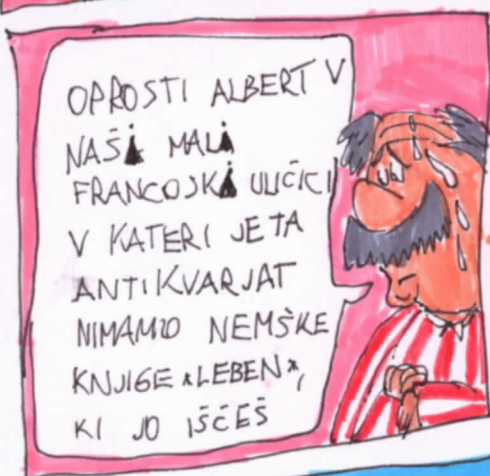 OPROSTI ALBERT V
NAŠI MALI
FRANCOJSKI ULIČICI
V KATERI JE TA
ANTIKVARJAT
NIMAMO NEMŠKE
KNJIGE "LEBEN",
KI JO IŠČEŠ